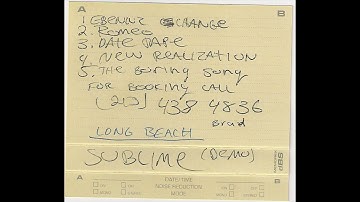 A B
1. EBENNIZ CHANGE
2. Romeo
3. DATE RAPE
4. NEW REALIZATION
5. THE Boring Song
FOR BOOKING CALL
(213) 438 4836
Brad
LONG BEACH
SUBLIME (DEMO)
A DATE/TIME B
NOISE REDUCTION